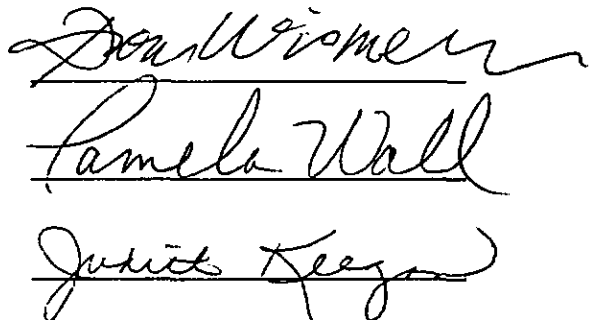 Don Wismer
Pamela Wall
Judith Keegan